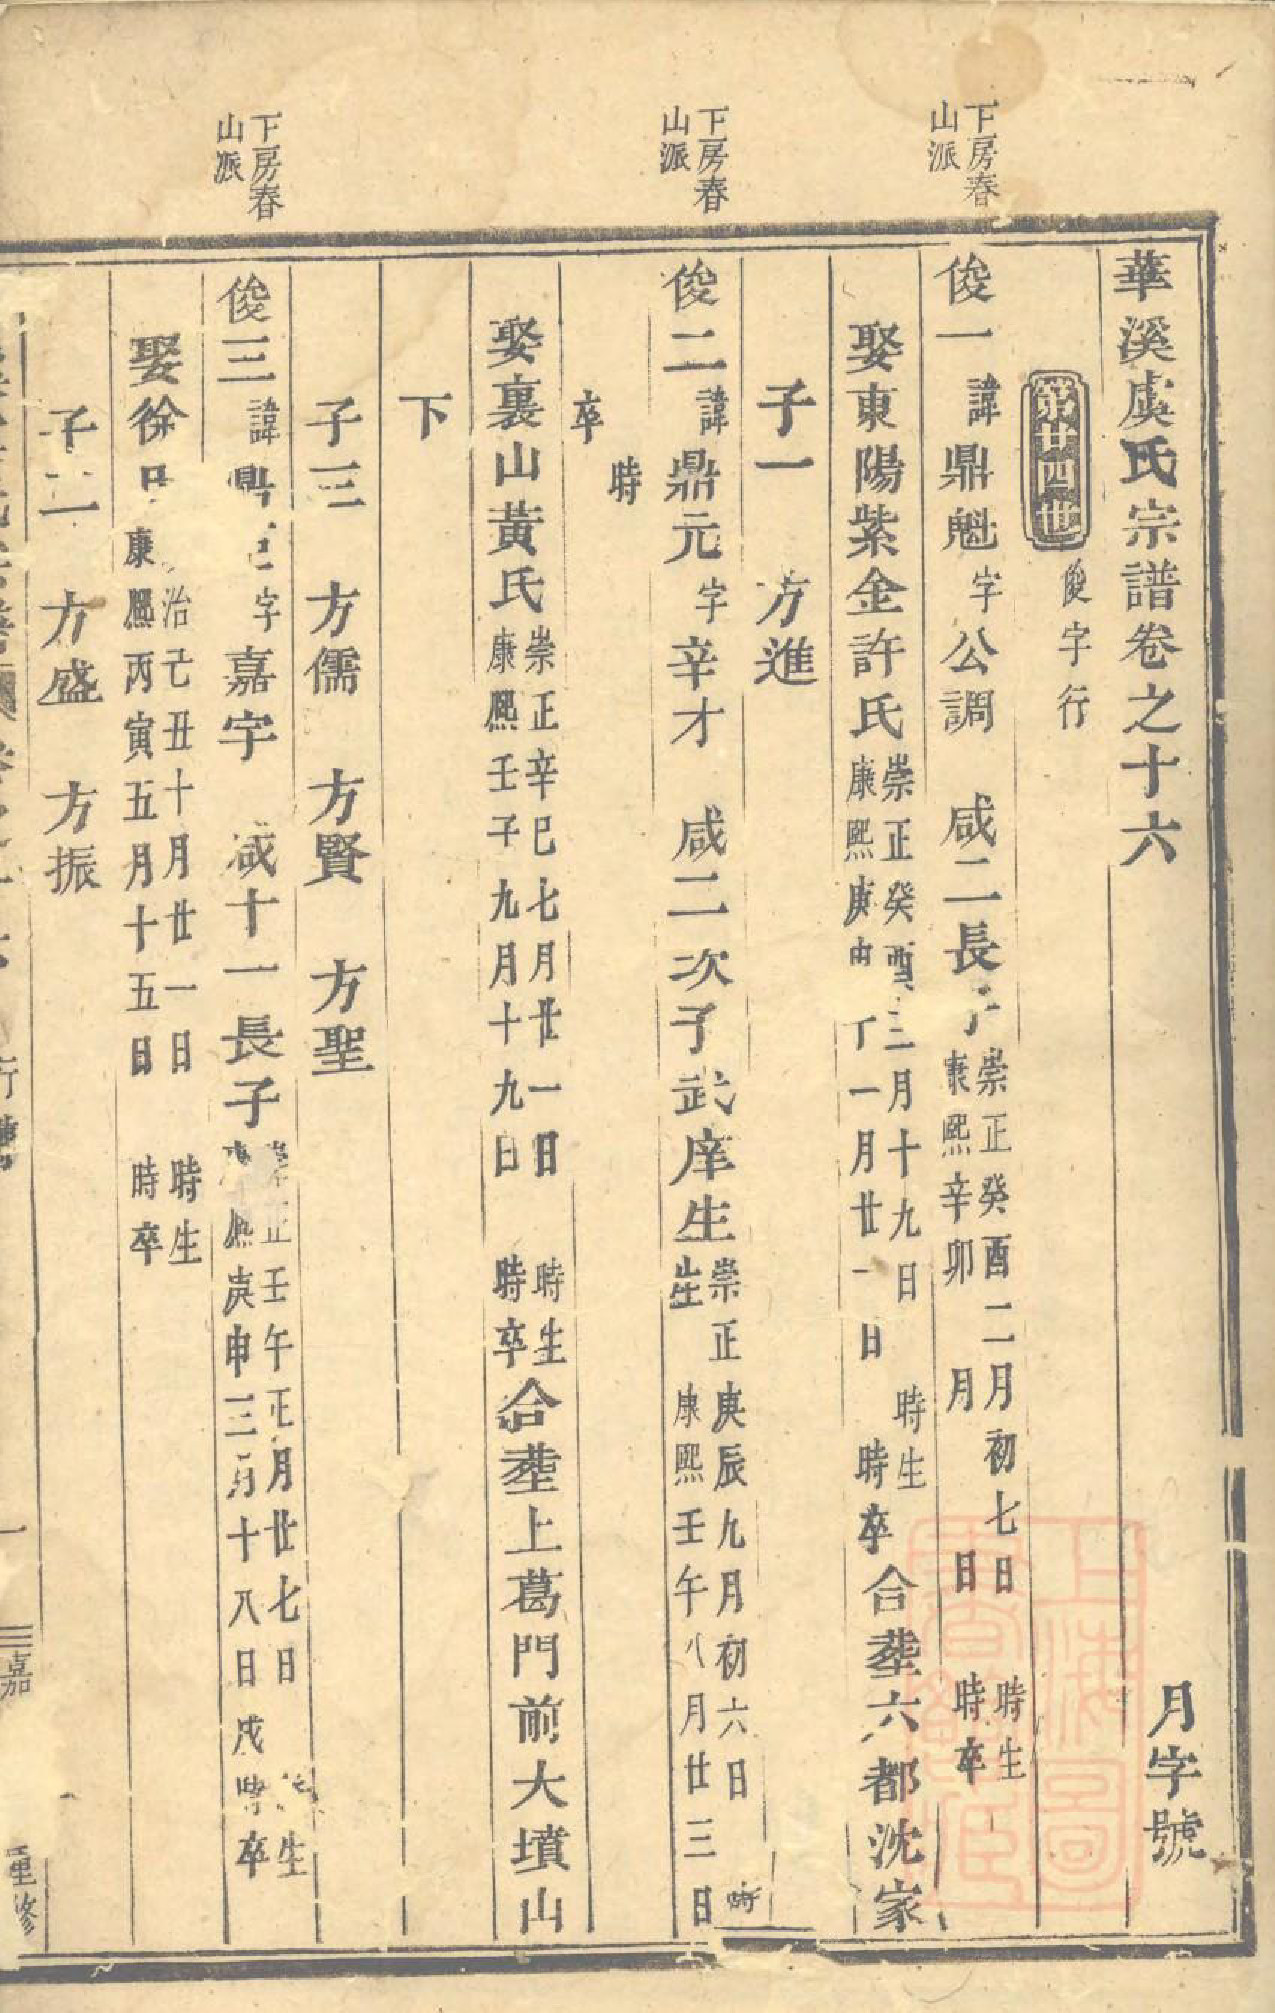 華溪虞氏宗譜卷之十六
月字號
第廿四世
俊字行
下房春
山派
俊一
諱
鼎魁
字
公調
咸二長子
崇正癸酉二月初七日 時生
康熙辛卯 月 日 時卒
娶東陽紫金許氏
崇正癸酉三月十九日 時生
康熙庚申十一月廿一日 時卒
合塟六都沈家
子一 方進
下房春
山派
俊二
諱
鼎元
字
辛才
咸二次子武庠生
崇正庚辰九月初六日 時
生 康熙壬午八月廿三日
時
卒
娶裏山黃氏
崇正辛巳七月廿一日 時生
康熙壬子九月十九日 時卒
合塟上葛門前大墳山
下
子三 方儒 方賢 方聖
下房春
山派
俊三
諱
鼎
字
嘉宇
咸十一長子
崇正壬午正月廿七日 生
康熙庚申三月十八日戌時卒
娶徐氏
治己丑十月廿一日 時生
康熙丙寅五月十五日 時卒
子二 方盛 方振
行
一
三嘉
重修